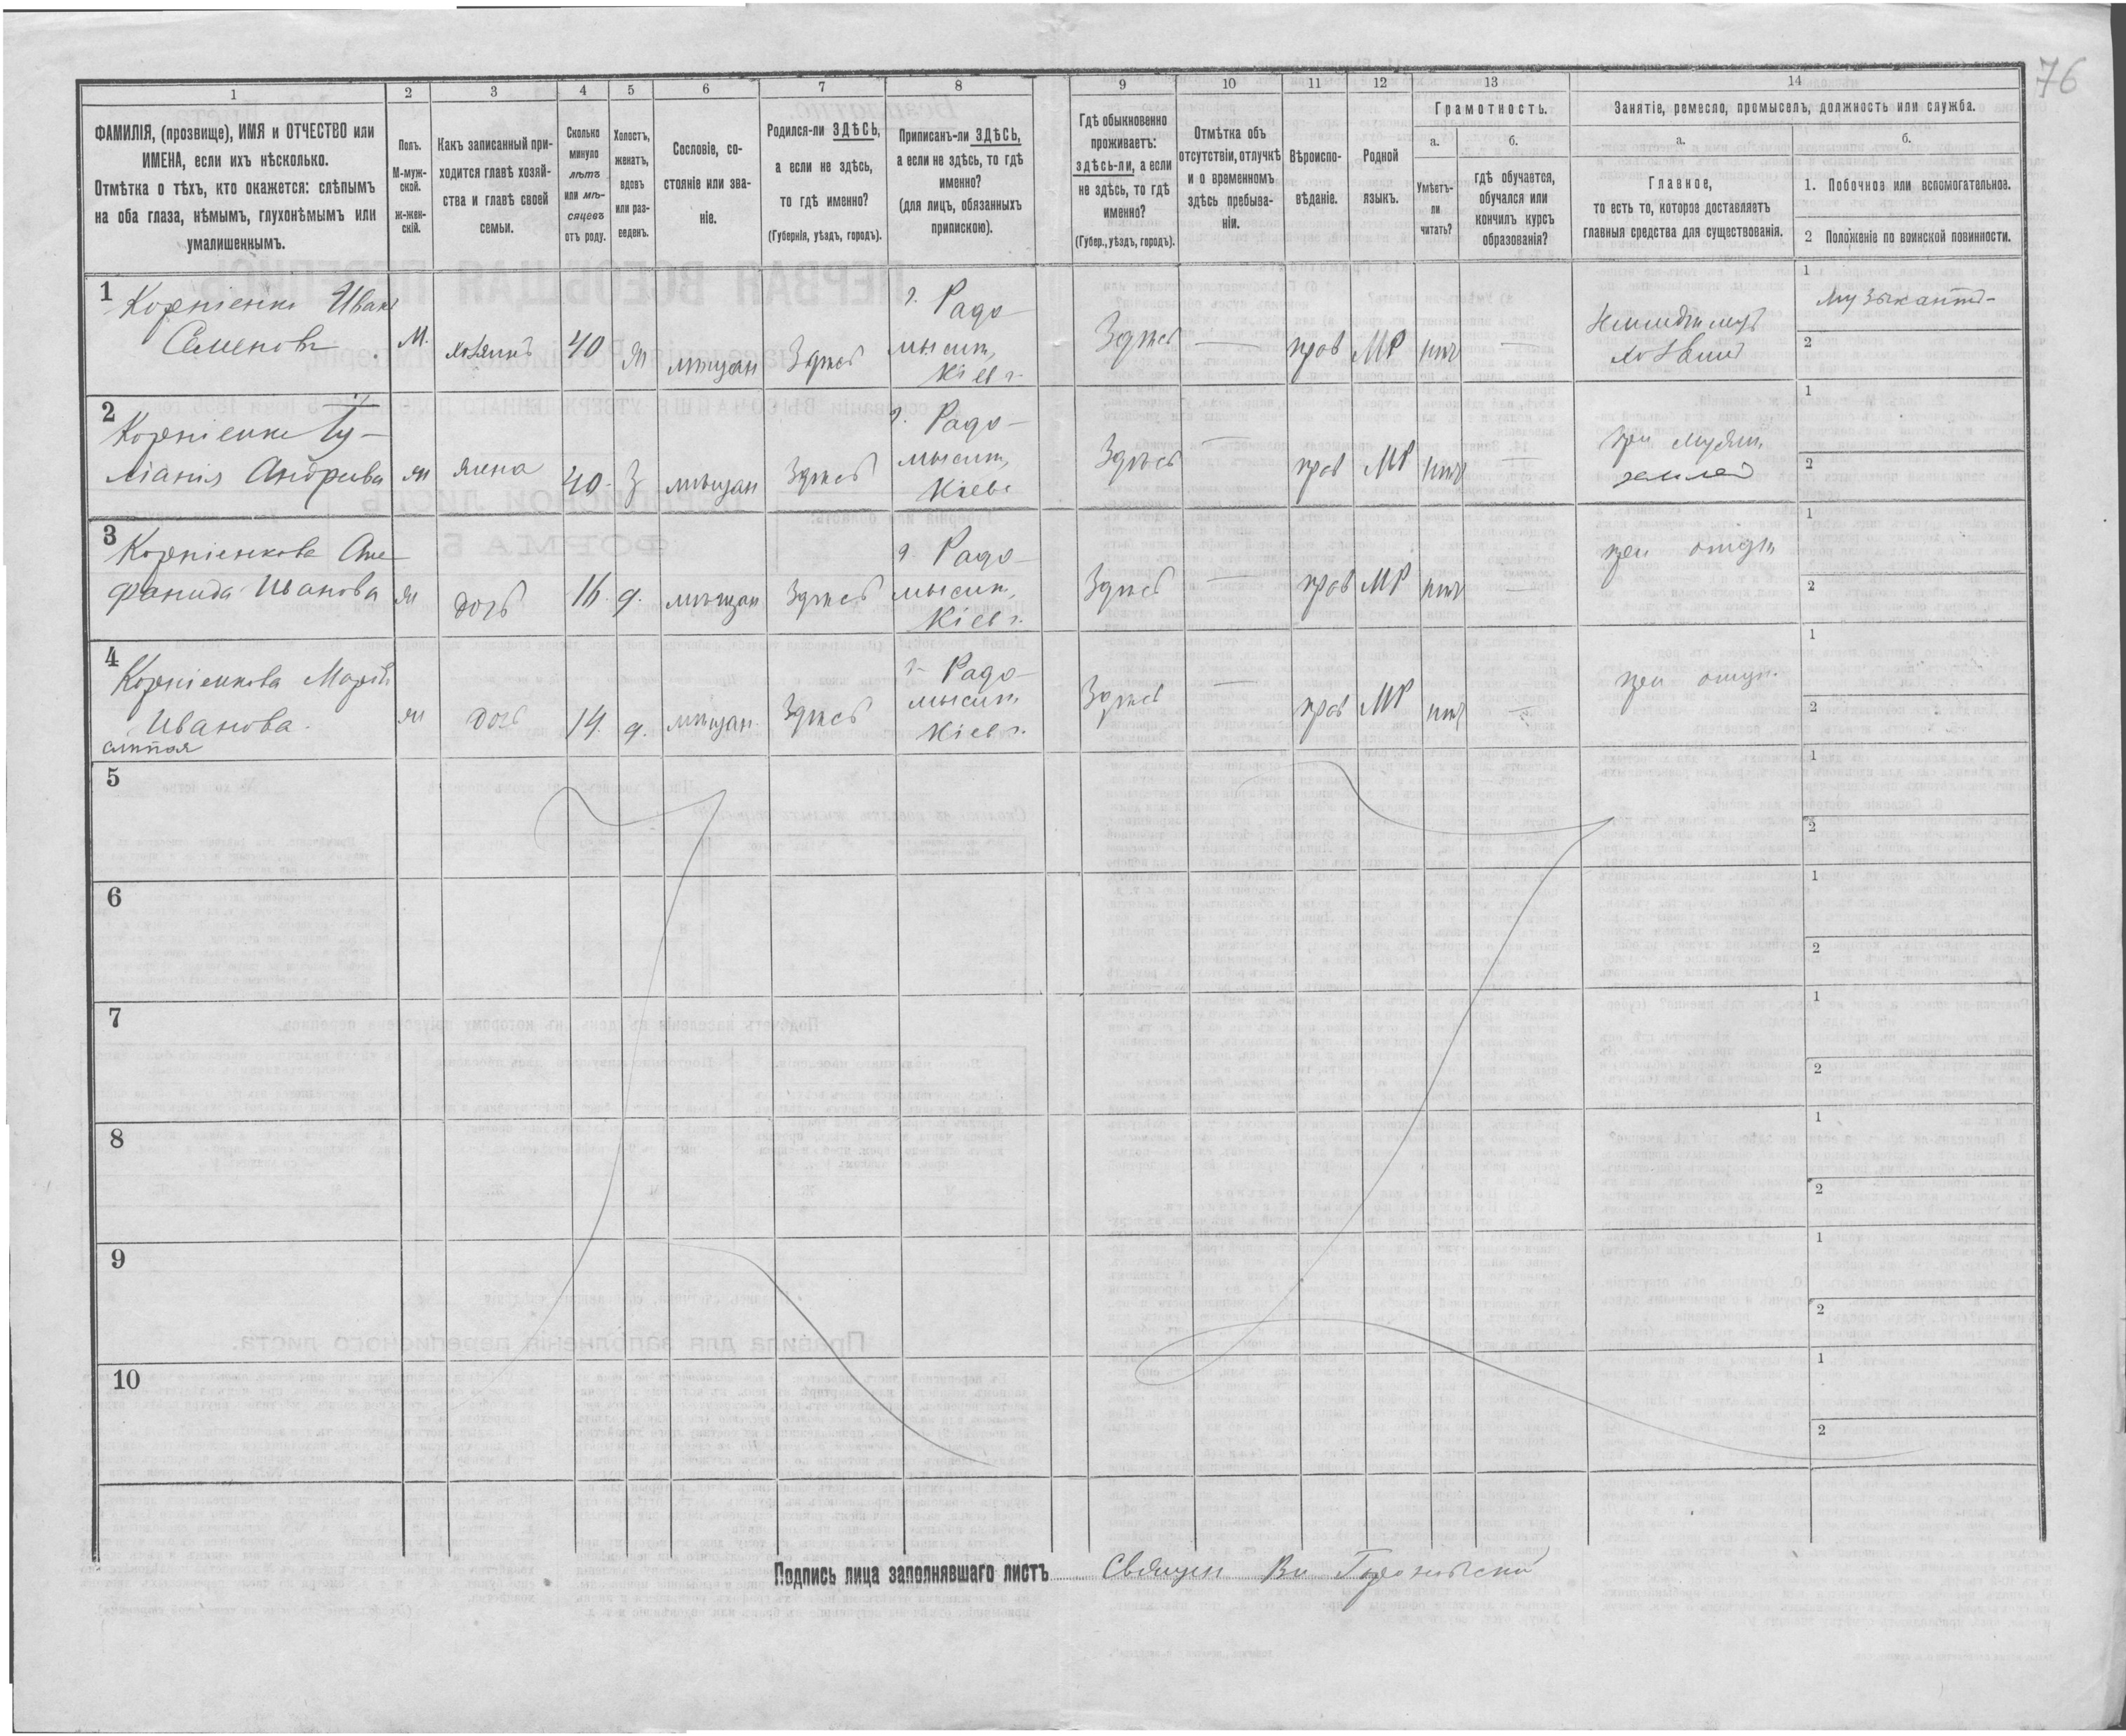 76
1
2
3
4
5
6
7
8
9
10
11
12
13
14
ФАМИЛІЯ, (прозвище), ИМЯ и ОТЧЕСТВО или
ИМЕНА, если ихъ нѣсколько.
Отмѣтка о тѣхъ, кто окажется: слѣпымъ
на оба глаза, нѣмымъ, глухонѣмымъ или
умалишеннымъ.
Полъ.
М-муж-
ской.
ж-жен-
скій.
Какъ записанный при-
ходится главѣ хозяй-
ства и главѣ своей
семьи.
Сколько
минуло
лѣтъ
или мѣ-
сяцевъ
отъ роду.
Холостъ,
женатъ,
вдовъ
или раз-
веденъ.
Сословіе, со-
стояніе или зва-
ніе.
Родился-ли ЗДѢСЬ,
а если не здѣсь,
то гдѣ именно?
(Губернія, уѣздъ, городъ).
Приписанъ-ли ЗДѢСЬ,
а если не здѣсь, то гдѣ
именно?
(для лицъ, обязанныхъ
припискою).
Гдѣ обыкновенно
проживаетъ:
здѣсь-ли, а если
не здѣсь, то гдѣ
именно?
(Губер., уѣздъ, городъ).
Отмѣтка объ
отсутствіи, отлучкѣ
и о временномъ
здѣсь пребыва-
ніи.
Вѣроиспо-
вѣданіе.
Родной
языкъ.
Грамотность.
а.
б.
Умѣетъ-
ли
читать?
гдѣ обучается,
обучался или
кончилъ курсъ
образованія?
Занятіе, ремесло, промыселъ, должность или служба.
а.
б.
Главное,
то есть то, которое доставляетъ
главныя средства для существованія.
1. Побочное или вспомогательное.
2 Положеніе по воинской повинности.
1
Корніенко Иванъ
Семеновъ
М.
хозяинъ
40
ж
мѣщан
Здѣсь
г. Радо-
мысль,
Кіев г.
Здѣсь
—
прав
МР
нѣт
—
хозяинъ
1
Музыкантъ-
2
2
Корніенко
Андрѣева
ж
жена
40.
З
мѣщан
Здѣсь
г. Радо-
мысль,
Кіевс
Здѣсь
—
прав
МР
нѣт
—
при мужѣ
1
2
3
Корніенкова Сте
фанида Иванова
ж
дочь
16.
д.
мѣщан
Здѣсь
г. Радо-
мысль,
Кіев г.
Здѣсь
—
прав
МР
нѣт
—
при отцѣ
1
2
4
Корніенкова Марія
Иванова.
слѣпая
ж
дочь
14.
д.
мѣщан.
Здѣсь
г. Радо-
мысль,
Кіев г.
Здѣсь
—
прав
МР
нѣт
—
при отцѣ.
1
2
5
1
2
6
1
2
7
1
2
8
1
2
9
1
2
10
1
2
Подпись лица заполнявшаго листъ Священ